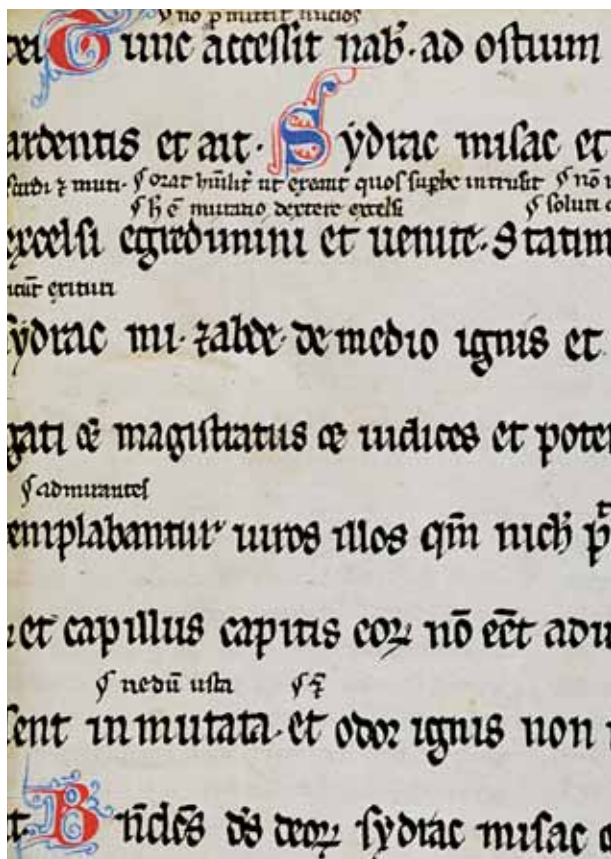 ¶ no p̄ mittit nūcios
cei Tunc accessit nab̄. ad ostium
ardentis et ait. Sẏdrac misac et
surdi ⁊ muti. ¶ orat hūilit̄ ut exeant quos sup̄be intrusit ¶ nō
¶ h̄ ē mutatio dextere excelsi ¶ soluti
excelsi egredimini et uenite. Statim
exituri
sẏdrac mi. ⁊ abde. de medio ignis et
gati &̄ magistratus &̄ iudices et poten
¶ admirantes
emplabantur uiros illos qm̄ nich̄ p̄t
et capillus capitis coꝝ nō eēt adu
¶ nedū usta ¶ ⁊̄
sent inmutata. et odor ignis non
t. Bn̄dcēs d̄s deoꝝ sẏdrac misac e